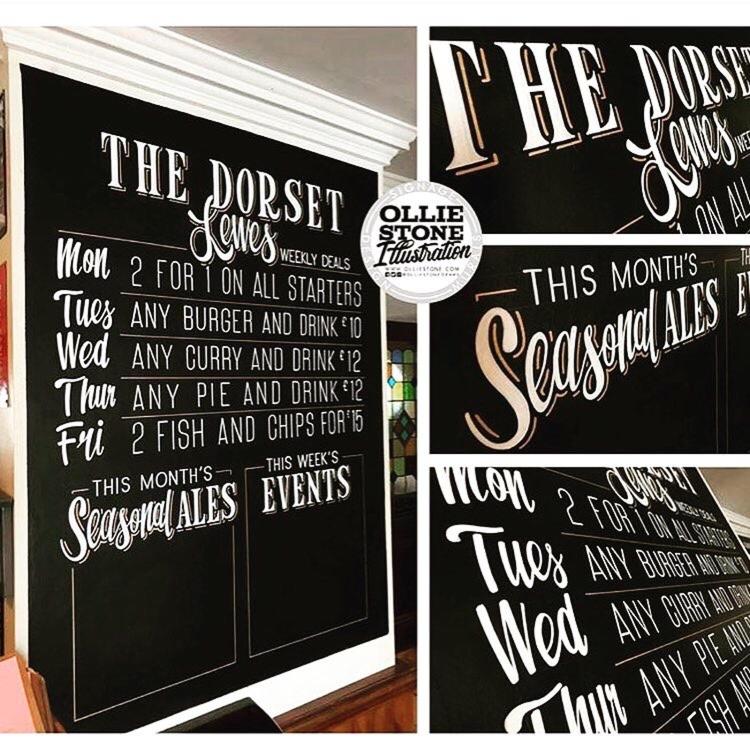 THE DORSET
Lewes
WEEKLY DEALS
Mon 2 FOR 1 ON ALL STARTERS
Tues ANY BURGER AND DRINK £10
Wed ANY CURRY AND DRINK £12
Thur ANY PIE AND DRINK £12
Fri 2 FISH AND CHIPS FOR £15
THIS MONTH'S
Seasonal ALES
THIS WEEK'S
EVENTS
SIGNAGE
OLLIE
STONE
Illustration
WWW.OLLIESTONE.COM
THE DORSE
Lewes WE
1 ON AL
THIS MONTH'S TH
Seasonal ALES E
Mon 2 FOR 1 ON ALL STARTERS
Lewes WEEKLY DEALS
Tues ANY BURGER AND DRINK
Wed ANY CURRY AND DRIN
Thur ANY PIE AN
FISH AN